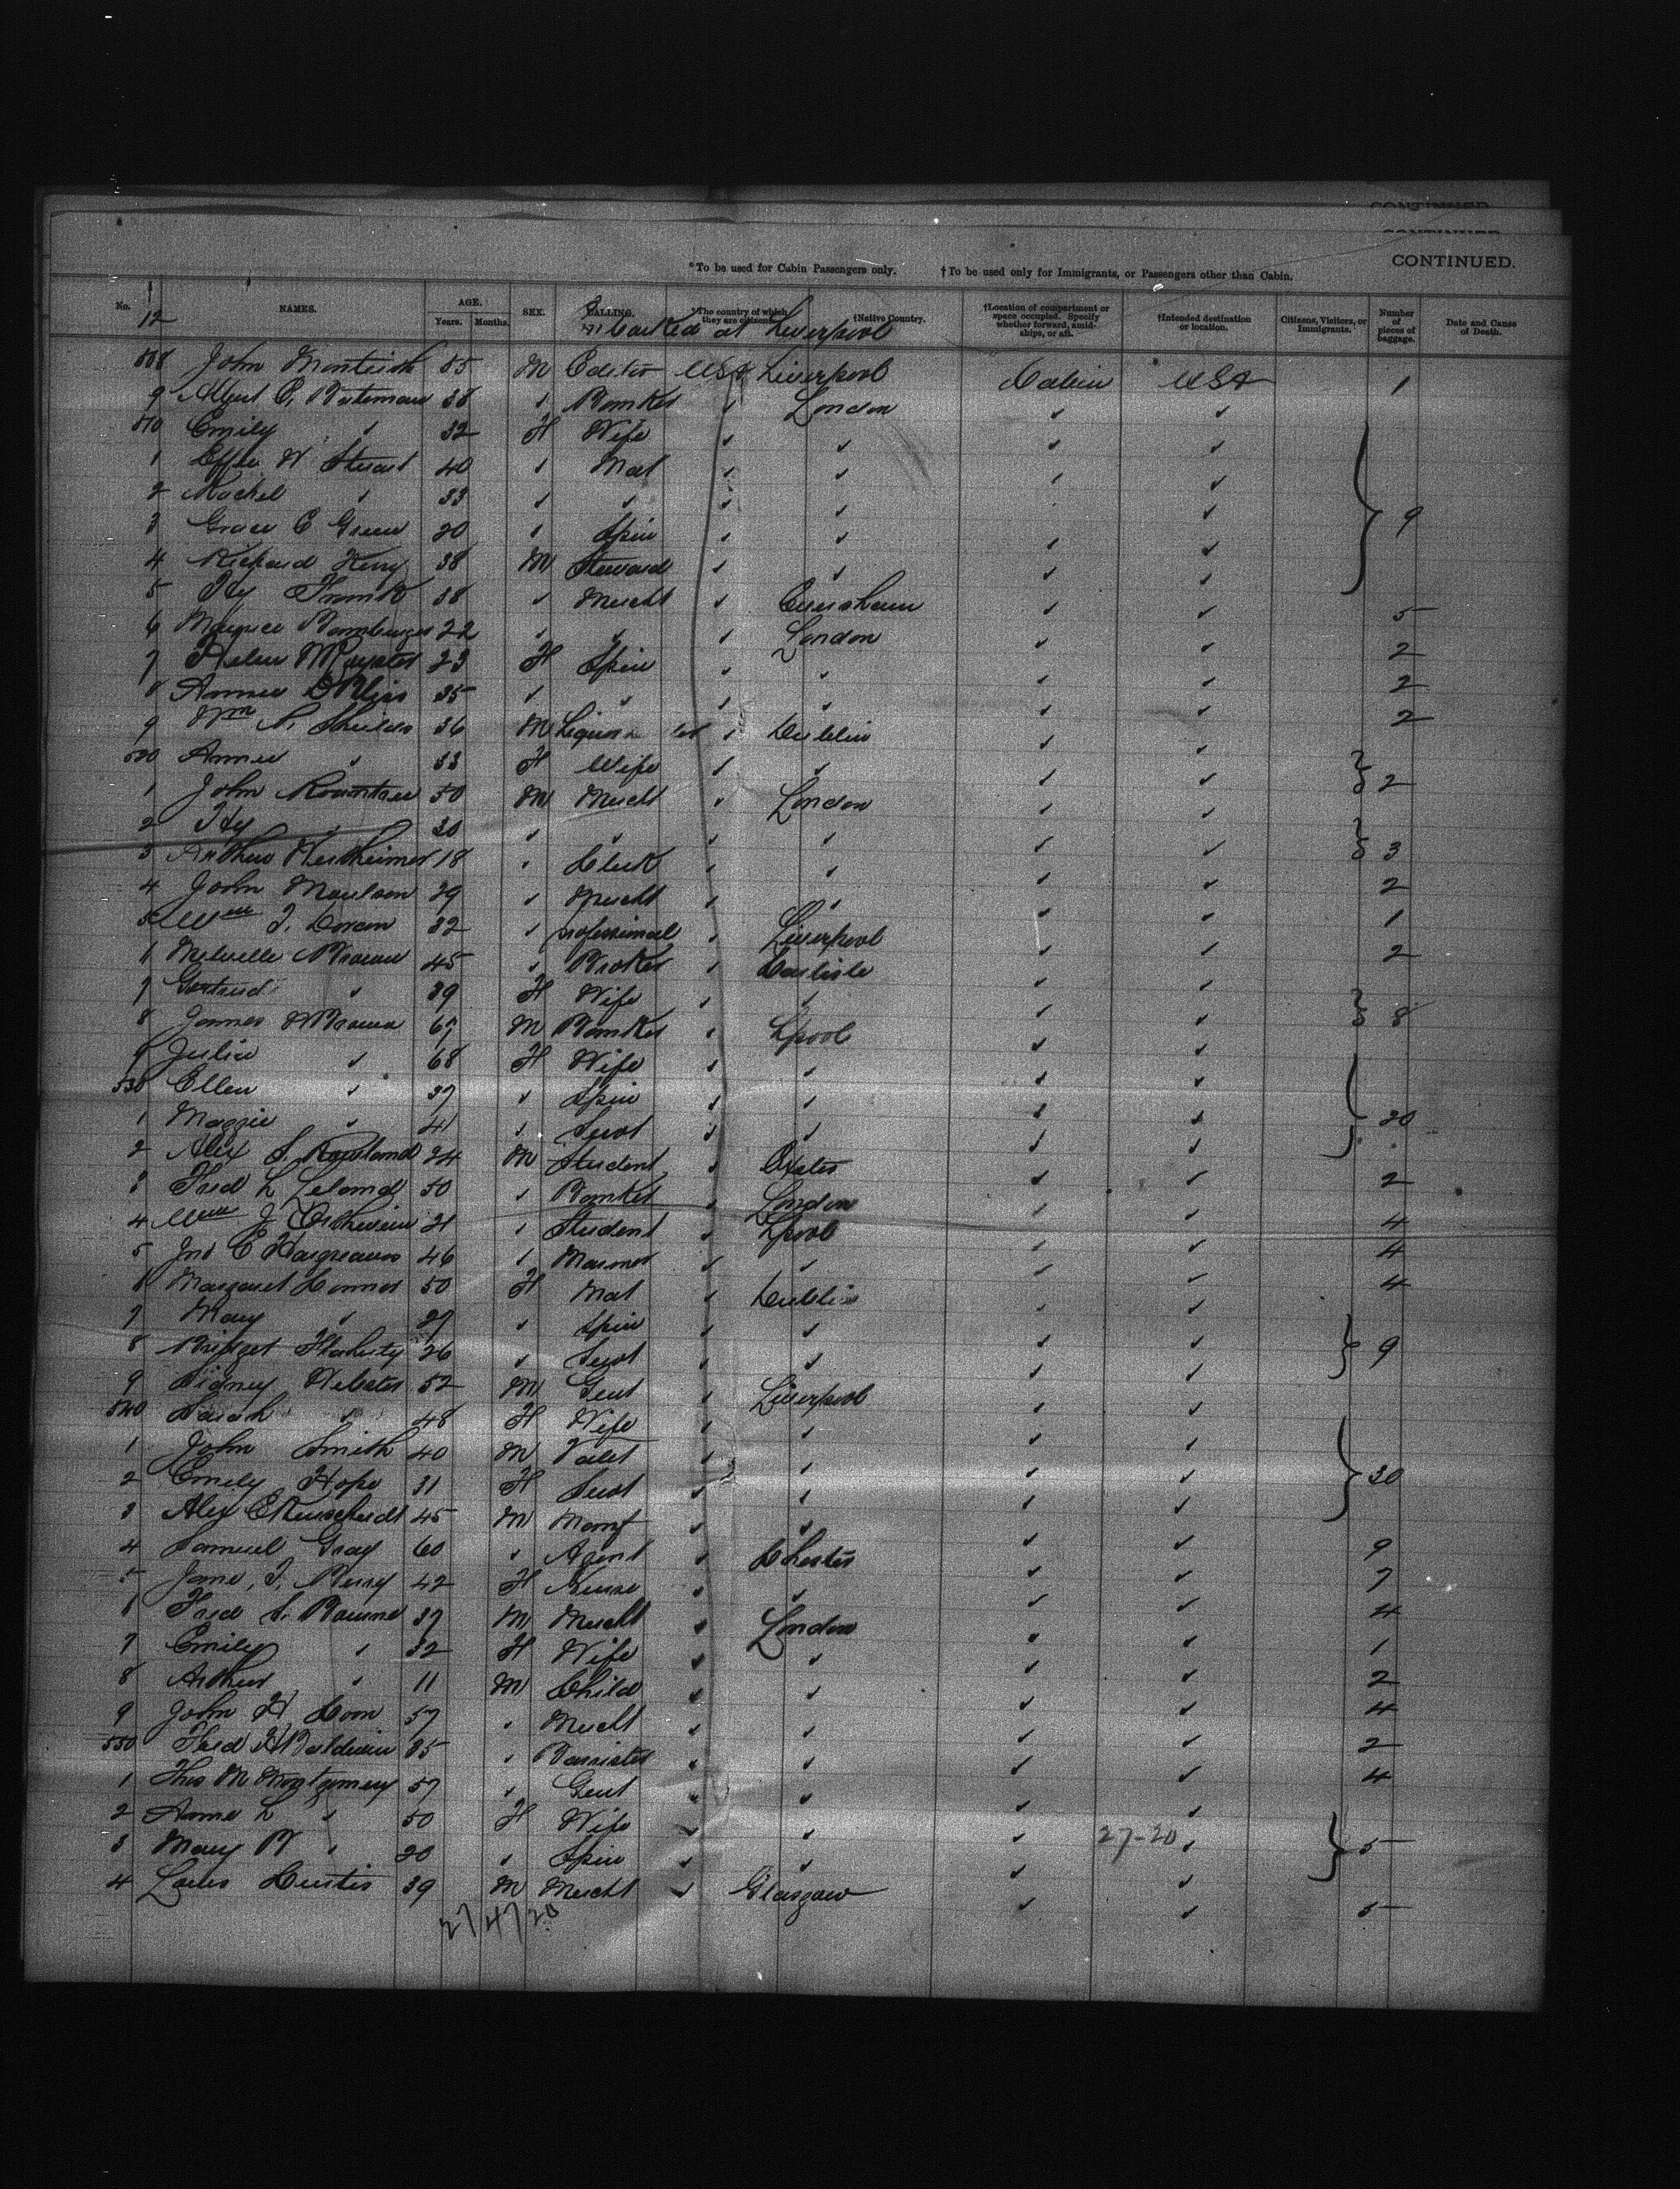 CONTINUED.
*To be used for Cabin Passengers only. †To be used only for Immigrants, or Passengers other than Cabin.
No. NAMES. AGE. Years. Months. SEX. CALLING. *The country of which they are citizens. †Native Country. †Location of compartment or space occupied. Specify whether forward, amidships, or aft. †Intended destination or location. Citizens, Visitors, or Immigrants. Number of pieces of baggage. Date and Cause of Death.
12 Embarked at Liverpool
508 John Monteith 55 M Editor USA Liverpool Cabin USA 1
9 Albert C. Bateman 38 ✓ Banker ✓ London ✓ ✓
510 Emily ✓ 32 F Wife ✓ ✓ ✓ ✓
1 Effie W Stuart 40 ✓ Mat ✓ ✓ ✓ ✓
2 Rachel ✓ 33 ✓ ✓ ✓ ✓ ✓
3 Grace C Green 20 ✓ Spin ✓ ✓ ✓ ✓ 9
4 Richard Henry 38 M Steward ✓ ✓ ✓ ✓
5 Hy Frank 38 ✓ Mercht ✓ ✓ ✓ 5
6 Maurice Bamberger 22 ✓ ✓ ✓ London ✓ ✓ 2
7 Helen 23 F Spin ✓ ✓ ✓ ✓ 2
8 Annie Bliss 35 ✓ ✓ ✓ ✓ ✓ ✓ 2
9 Wm A. Shields 36 M Liquor ✓ Dublin ✓ ✓
520 Annie ✓ 33 F Wife ✓ ✓ ✓ ✓ 2
1 John Rowntree 50 M Mercht ✓ London ✓ ✓
2 Hy ✓ 30 ✓ ✓ ✓ ✓ ✓ ✓ 3
3 Arthur Wertheimer 18 ✓ Clerk ✓ ✓ ✓ ✓ 2
4 John Moulson 29 ✓ Mercht ✓ ✓ ✓ ✓ 1
5 Wm J. Doran 32 ✓ professional ✓ Liverpool ✓ ✓ 2
6 Melville Brown 45 ✓ Broker ✓ Carlisle ✓ ✓
7 Gertrude ✓ 39 F Wife ✓ ✓ ✓ ✓ 8
8 James Brown 67 M Banker ✓ Lpool ✓ ✓
9 Julia ✓ 68 F Wife ✓ ✓ ✓ ✓
530 Ellen ✓ 37 ✓ Spin ✓ ✓ ✓ ✓ 20
1 Maggie ✓ 41 ✓ Servt ✓ ✓ ✓ ✓
2 Alex S. Rowland 24 M Student ✓ ✓ ✓ 2
3 Fred L Leland 50 ✓ Banker ✓ London ✓ ✓ 4
4 Wm J 21 ✓ Student ✓ Lpool ✓ ✓ 4
5 Jno C Hargreaves 46 ✓ Mariner ✓ ✓ ✓ ✓ 4
6 Margaret Connor 50 F Mat ✓ Dublin ✓ ✓
7 Mary ✓ 27 ✓ Spin ✓ ✓ ✓ ✓ 9
8 Bridget Flaherty 26 ✓ Servt ✓ ✓ ✓ ✓
9 Sidney Webster 52 M Gent ✓ Liverpool ✓ ✓
540 Sarah ✓ 48 F Wife ✓ ✓ ✓ ✓
1 John Smith 40 M Valet ✓ ✓ ✓ ✓ 30
2 Emily Hope 31 F Servt ✓ ✓ ✓ ✓
3 Alex 45 M Manf ✓ ✓ ✓ ✓ 9
4 Samuel Gray 60 ✓ Agent ✓ Chester ✓ ✓ 7
5 Jane J. Merry 42 F Nurse ✓ ✓ ✓ ✓ 4
6 Fred S. Bourne 37 M Mercht ✓ London ✓ ✓ 1
7 Emily ✓ 32 F Wife ✓ ✓ ✓ ✓ 2
8 Arthur ✓ 11 M Child ✓ ✓ ✓ ✓ 4
9 John H Coon 57 ✓ Mercht ✓ ✓ ✓ ✓ 2
550 Fred H Baldwin 35 ✓ Barrister ✓ ✓ ✓ ✓ 4
1 Thos M Montgomery 57 ✓ Gent ✓ ✓ ✓ ✓
2 Anna L ✓ 50 F Wife ✓ ✓ ✓ 27-20 ✓ 5
3 Mary B ✓ 20 ✓ Spin ✓ ✓ ✓ ✓
4 Louis Curtis 39 M Mercht ✓ Glasgow ✓ ✓ 5
27/47/20